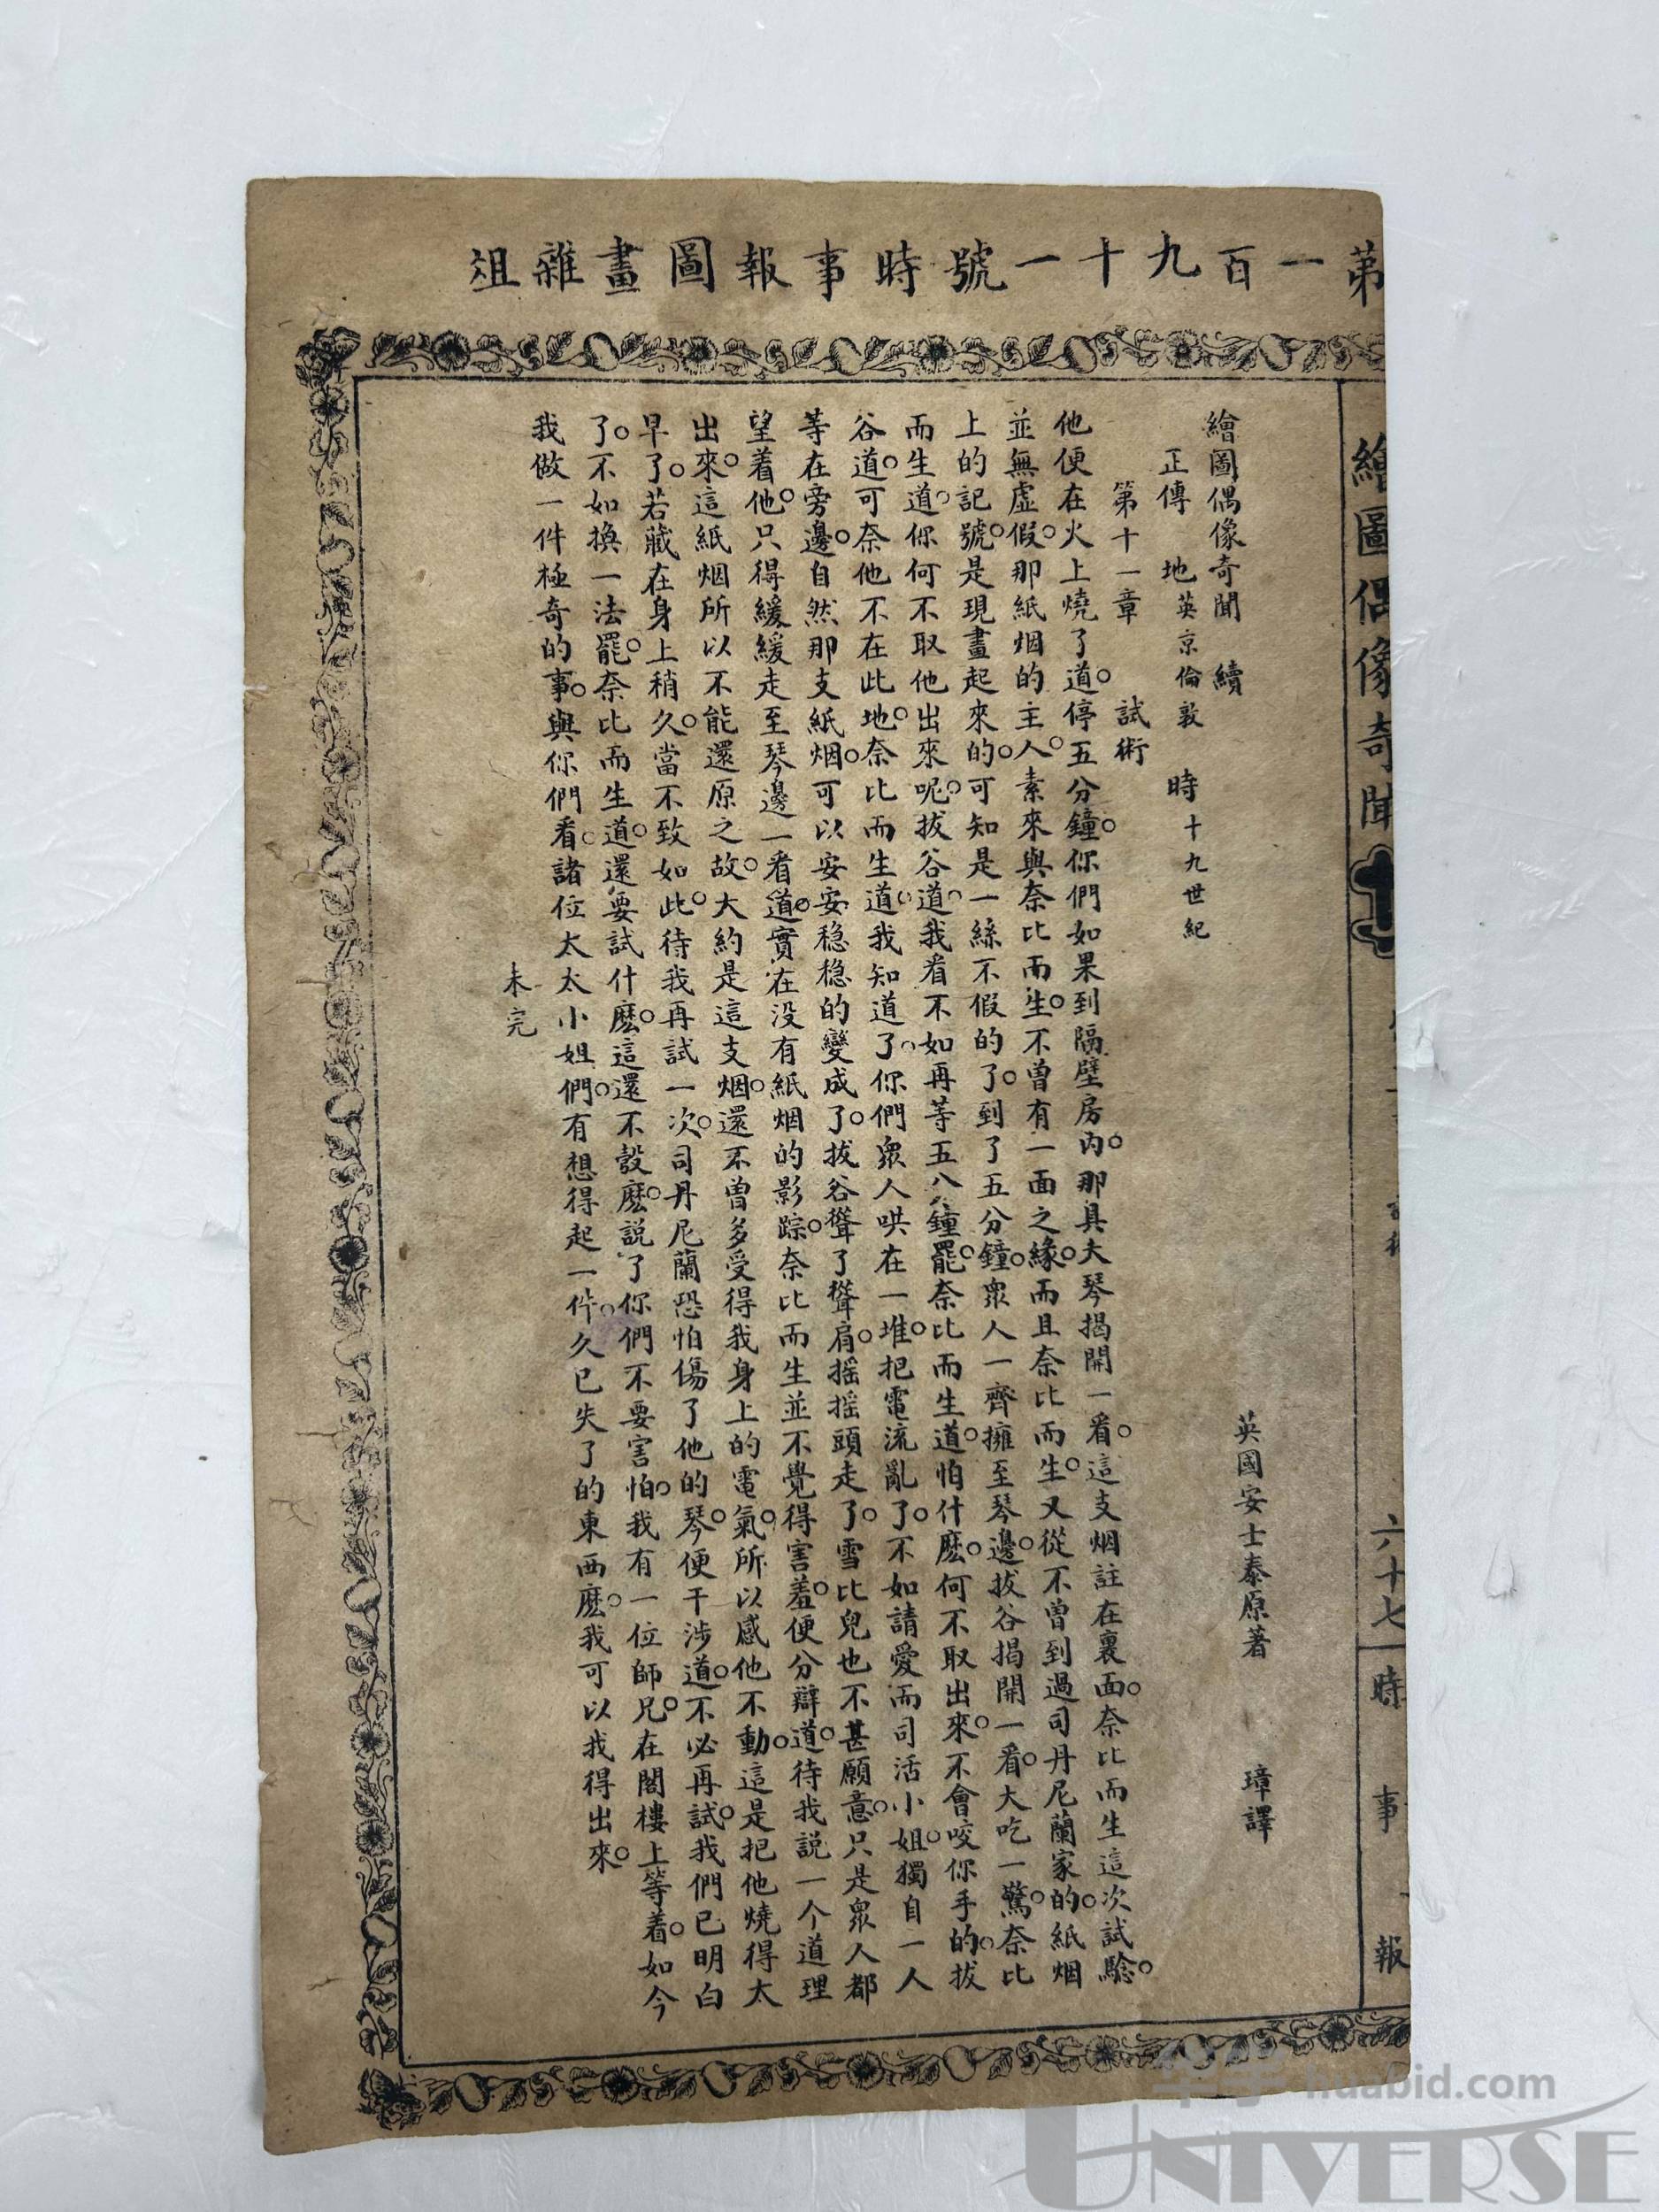 第一百九十一號時事報圖畫雜俎
繪圖偶像奇聞
六十七
時事報
繪圖偶像奇聞 續 英國安士泰原著 璋譯
正傳 地英京倫敦 時十九世紀
第十一章 試術
他便在火上燒了道。停五分鐘。你們如果到隔壁房內。那具大琴揭開一看。這支烟註在裏面。奈比而生這次試驗。
並無虛假。那紙烟的主人。素來與奈比而生。不曾有一面之緣。而且奈比而生。又從不曾到過司丹尼蘭家的。紙烟
上的記號。是現畫起來的。可知是一絲不假的了。到了五分鐘。衆人一齊擁至琴邊。拔谷揭開一看。大吃一驚。奈比
而生道。你何不取他出來呢。拔谷道。我看不如再等五八鐘罷。奈比而生道。怕什麽。何不取出來。不會咬你手的。拔
谷道。可奈他不在此地。奈比而生道。我知道了。你們衆人哄在一堆。把電流亂了。不如請愛而司活小姐。獨自一人
等在旁邊。自然那支紙烟。可以安安穩穩的變成了。拔谷聳了聳肩。搖搖頭走了。雪比兒也不甚願意。只是衆人都
望着他。只得緩緩走至琴邊一看道。實在没有紙烟的影踪。奈比而生並不覺得害羞。便分辯道。待我説一个道理
出來。這紙烟所以不能還原之故。大約是這支烟。還不曾多受得我身上的電氣。所以感他不動。這是把他燒得太
早了。若藏在身上稍久。當不致如此。待我再試一次。司丹尼蘭恐怕傷了他的琴。便干涉道。不必再試。我們已明白
了。不如換一法罷。奈比而生道。還要試什麽。這還不彀麽。説了你們不要害怕。我有一位師兄。在閣樓上等着。如今
我做一件極奇的事。與你們看。諸位太太小姐們。有想得起一件。久已失了的東西麽。我可以我得出來。
未完